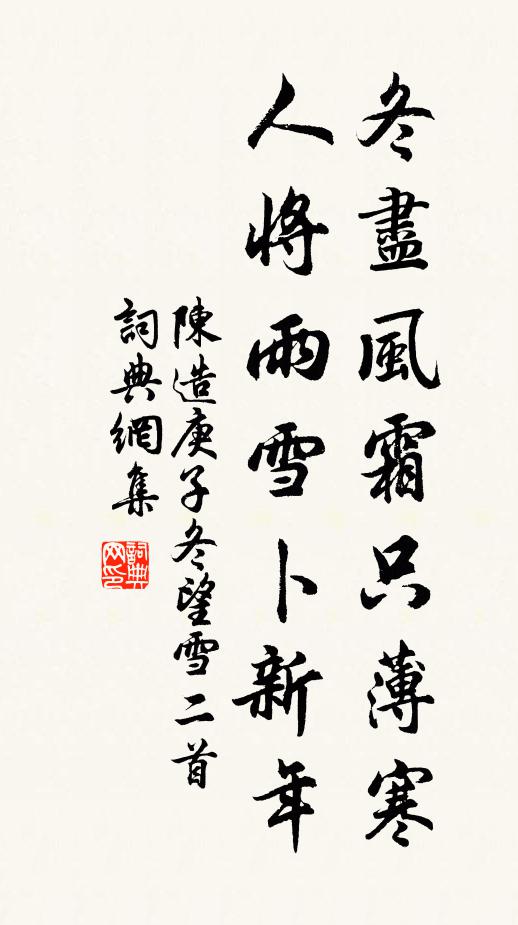 冬盡風霜只薄寒
人將雨雪卜新年
陳造庚子冬望雪二首
詞典網集
詞典网印